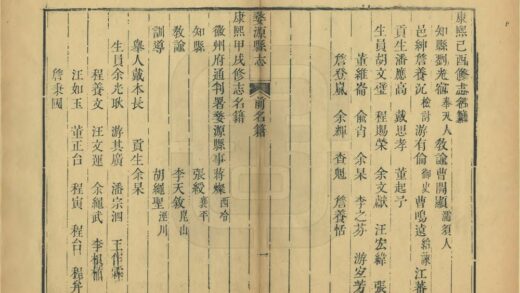 康熙己酉修志名籍
知縣劉光宿奉天人 教諭曹開顯瀟須人
邑紳詹養沉檢討 游有倫御史 曹鳴遠給諫 江蕃
貢生潘應高 戴思孝 董起予
生員胡文堂 程賜榮 余文獻 汪宏緯 張
董維崙 俞肯 余杲 李之芬 游定芳
詹登嵐 余輝 查魁 詹養恬
婺源縣志 前名籍 一
康熙甲戌修志名籍
徽州府通判署婺源縣事蔣燦西哈
知縣 張綬襄平
教諭 李天敘崑山
訓導 胡繩聖涇川
舉人戴本長 貢生余杲
生員余光耿 游其廣 潘宗泗 王作霖
程善文 汪文運 余繩武 李根植
汪如玉 董正台 程寅 程台 程弁
詹秉國